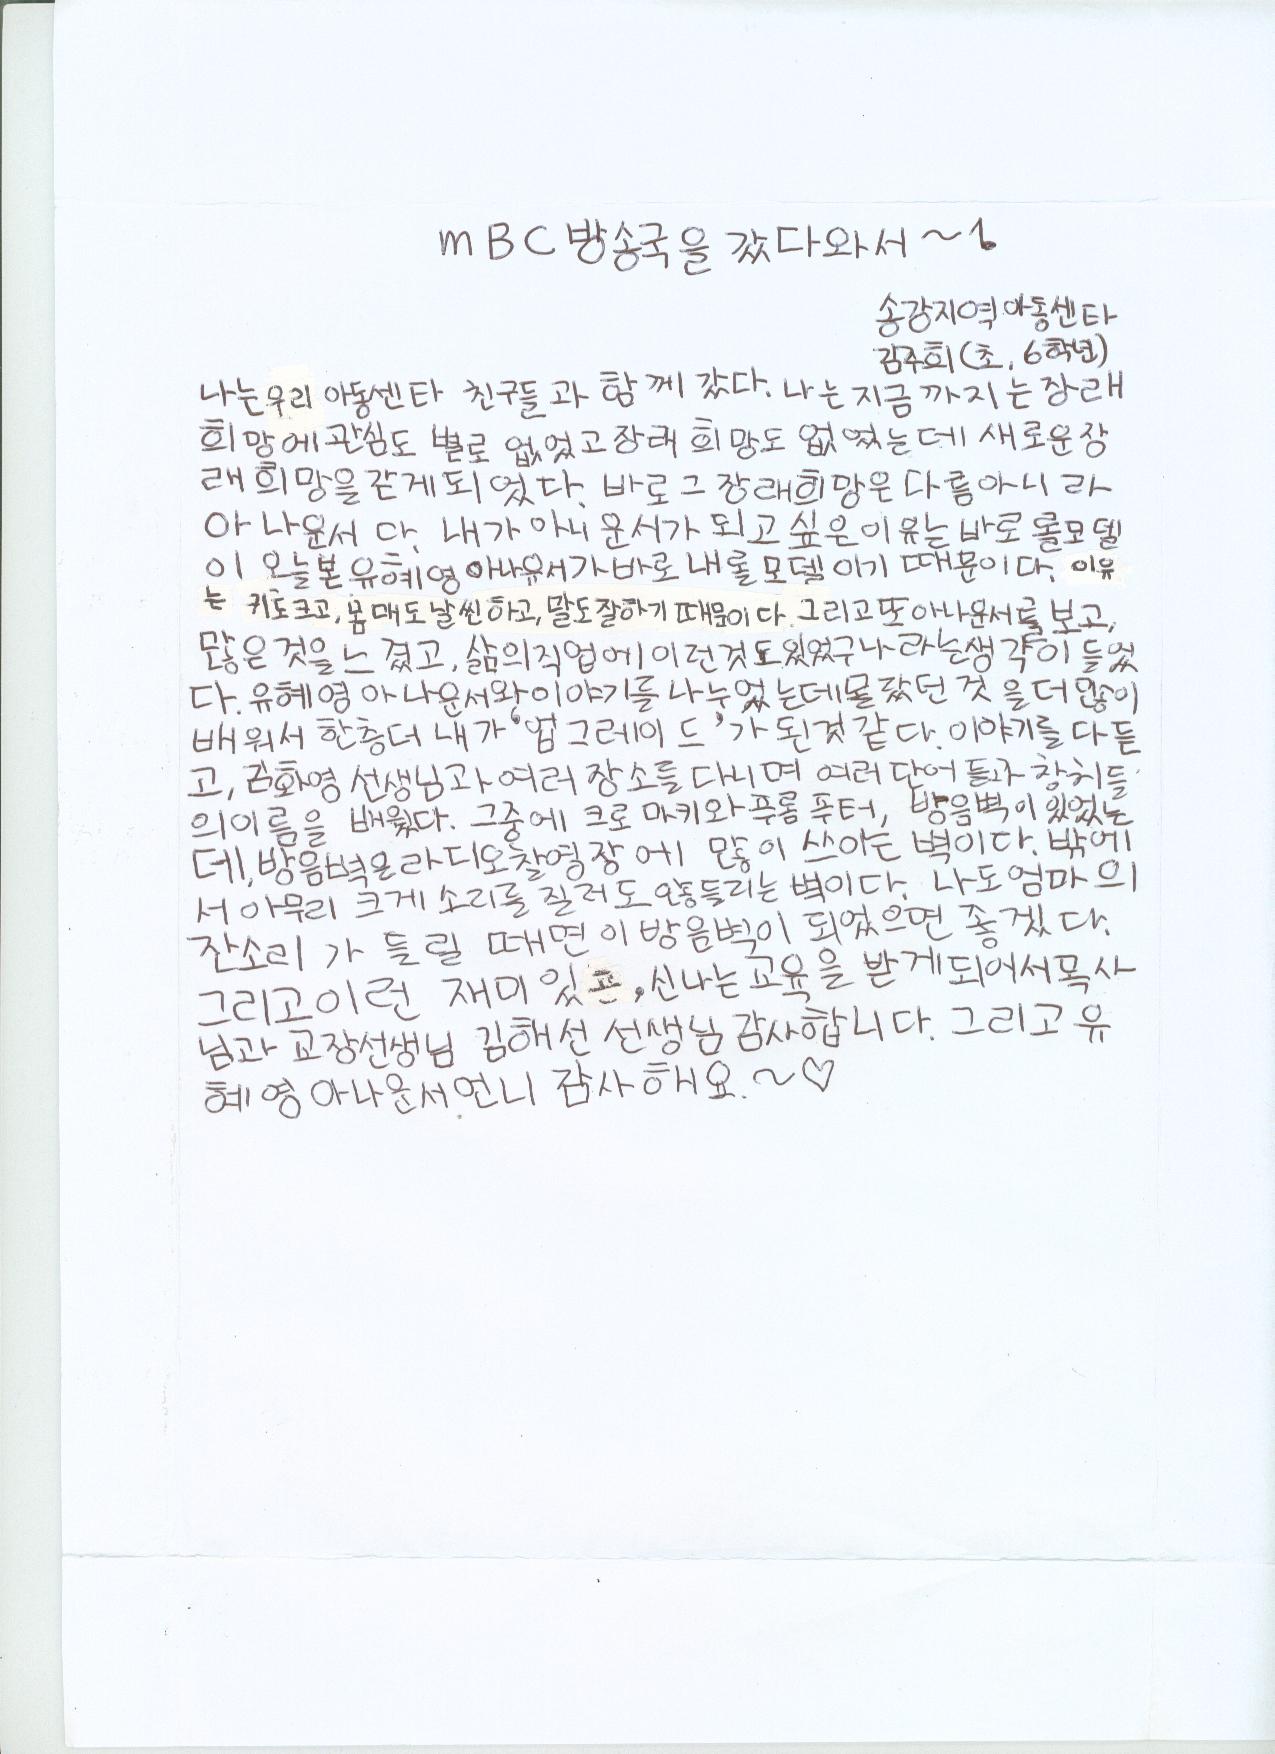 mBC방송국을 갔다와서~
송강지역아동센타
김주희(초, 6학년)
나는우리 아동센타 친구들과 함께 갔다. 나는지금까지는장래
희망에관심도 별로 없었고장래 희망도 없었는데 새로운장
래희망을갇게되었다. 바로그 장래희망은다름아니라
아나운서다. 내가 아나운서가 되고싶은이유는바로롤모델
이 오늘본유혜영아나운서가바로내롤모델이기 때문이다. 이유
는 키도크고, 몸매도날씬하고, 말도잘하기때문이다. 그리고또아나운서를보고,
많은것을느꼈고, 삶의직업에이런것도있었구나라는생각이들었
다. 유혜영아나운서와이야기를나누었는데몰랐던것을더많이
배워서 한층더 내가 '업그레이드'가 된것같다. 이야기를다듣
고, 김화영선생님과여러장소를다니며 여러단어들과장치들
의이름을 배웠다. 그중에 크로마키와푸롬푸터, 방음벽이있었는
데, 방음벽은라디오촬영장에 많이쓰이는벽이다. 밖에
서아무리 크게소리를질러도안들리는벽이다. 나도엄마의
잔소리가 들릴때면이방음벽이되었으면좋겠다.
그리고이런 재미있고, 신나는교육을받게되어서목사
님과 교장선생님 김해선 선생님감사합니다. 그리고유
혜영아나운서언니 감사해요.~♡